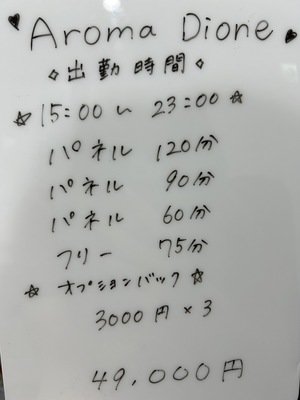 Aroma Dione
出勤時間
15:00〜23:00
パネル 120分
パネル 90分
パネル 60分
フリー 75分
オプションバック
3000円×3
49,000円